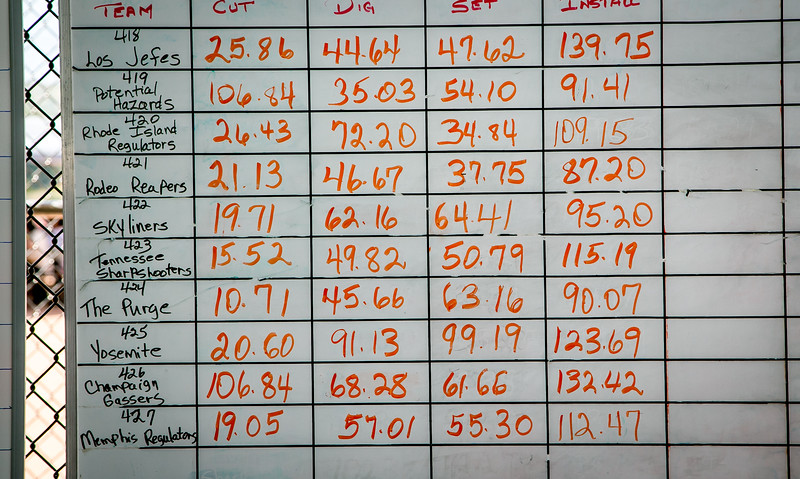 TEAM CUT DIG SET INSTALL
418
Los Jefes 25.86 44.64 47.62 139.75
419
Potential
Hazards 106.84 35.03 54.10 91.41
420
Rhode Island
Regulators 26.43 72.20 34.84 109.15
421
Rodeo Reapers 21.13 46.67 37.75 87.20
422
Skyliners 19.71 62.16 64.41 95.20
423
Tennessee
Sharpshooters 15.52 49.82 50.79 115.19
424
The Purge 10.71 45.66 63.16 90.07
425
Yosemite 20.60 91.13 99.19 123.69
426
Champaign
Gassers 106.84 68.28 61.66 132.42
427
Memphis Regulators 19.05 57.01 55.30 112.47